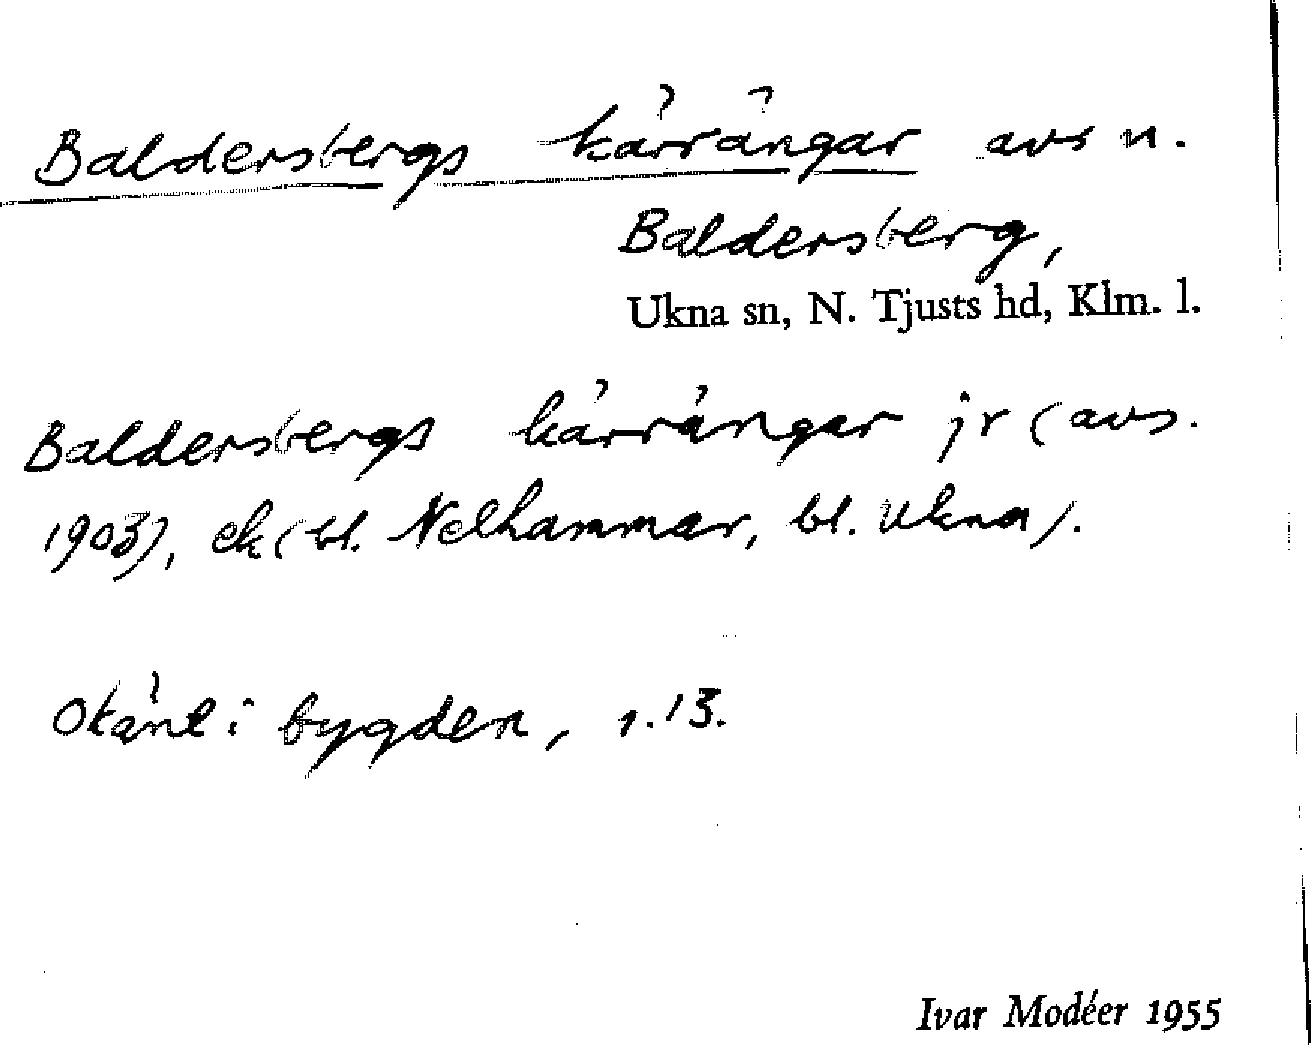 Baldersbergs kärrängar avs n.
Baldersberg,
Ukna sn, N. Tjusts hd, Klm. l.
Baldersbergs kärrängar jr (avs.
1903), ek (bl. Nelhammar, bl. Ukna).
Okänt i bygden, 1.13.
Ivar Modéer 1955